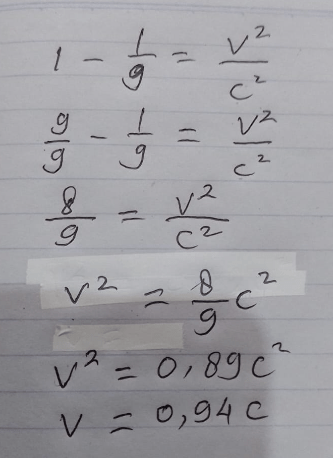 1 - 1/9 = v²/c²
9/9 - 1/9 = v²/c²
8/9 = v²/c²
v² = 8/9 c²
v² = 0,89c²
v = 0,94c